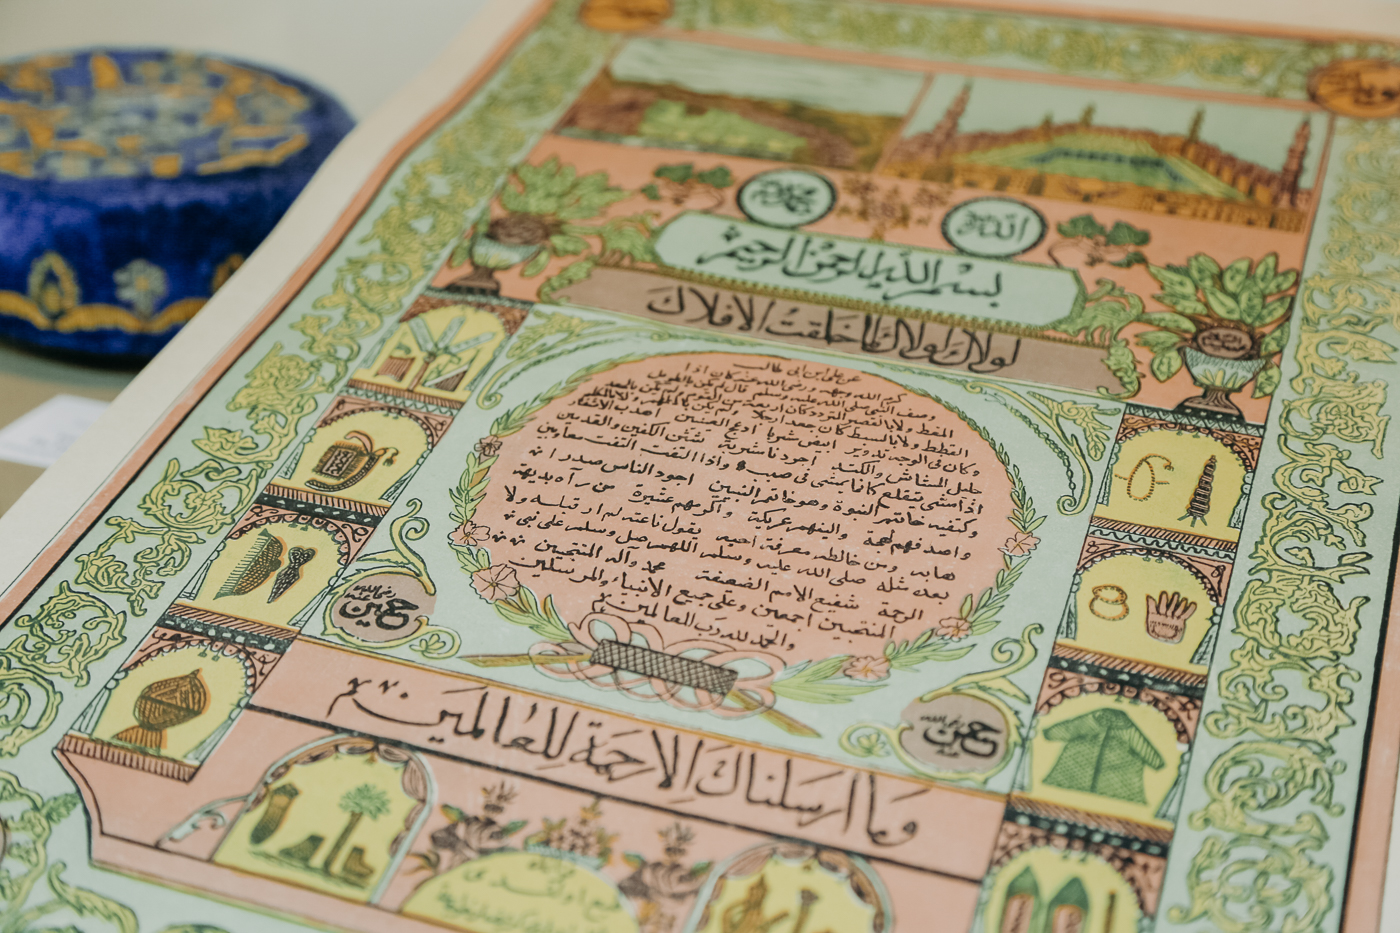 محمد
الله
بسم الله الرحمن الرحيم
لولاك لولاك لما خلقت الافلاك
عن علي ابن ابي طالب
كرم الله وجهه ورضي الله عنه كان اذا
وصف النبي صلى الله عليه وسلم قال لم يكن بالطويل
الممغط ولا بالقصير المتردد وكان ربعة من القوم لم يكن بالجعد
القطط ولا بالسبط كان جعدا رجلا ولم يكن بالمطهم ولا بالمكلثم
وكان في الوجه تدوير ابيض مشربا ادعج العينين اهدب الاشفار
جليل المشاش والكتد اجرد ذا مسربة شثن الكفين والقدمين
اذا مشى يتقلع كانما يمشي في صبب واذا التفت التفت معا وبين
كتفيه خاتم النبوة وهو خاتم النبيين اجود الناس صدرا
واصدقهم لهجة والينهم عريكة واكرمهم عشيرة من رآه بديهة
هابه ومن خالطه معرفة احبه يقول ناعته لم ار قبله ولا
بعده مثله صلى الله عليه وسلم اللهم صل وسلم على نبي
الرحمة شفيع الامم محمد وآله المنتجبين
اجمعين وعلى جميع الانبياء والمرسلين
والحمد لله رب العالمين
وما ارسلناك الا رحمة للعالمين